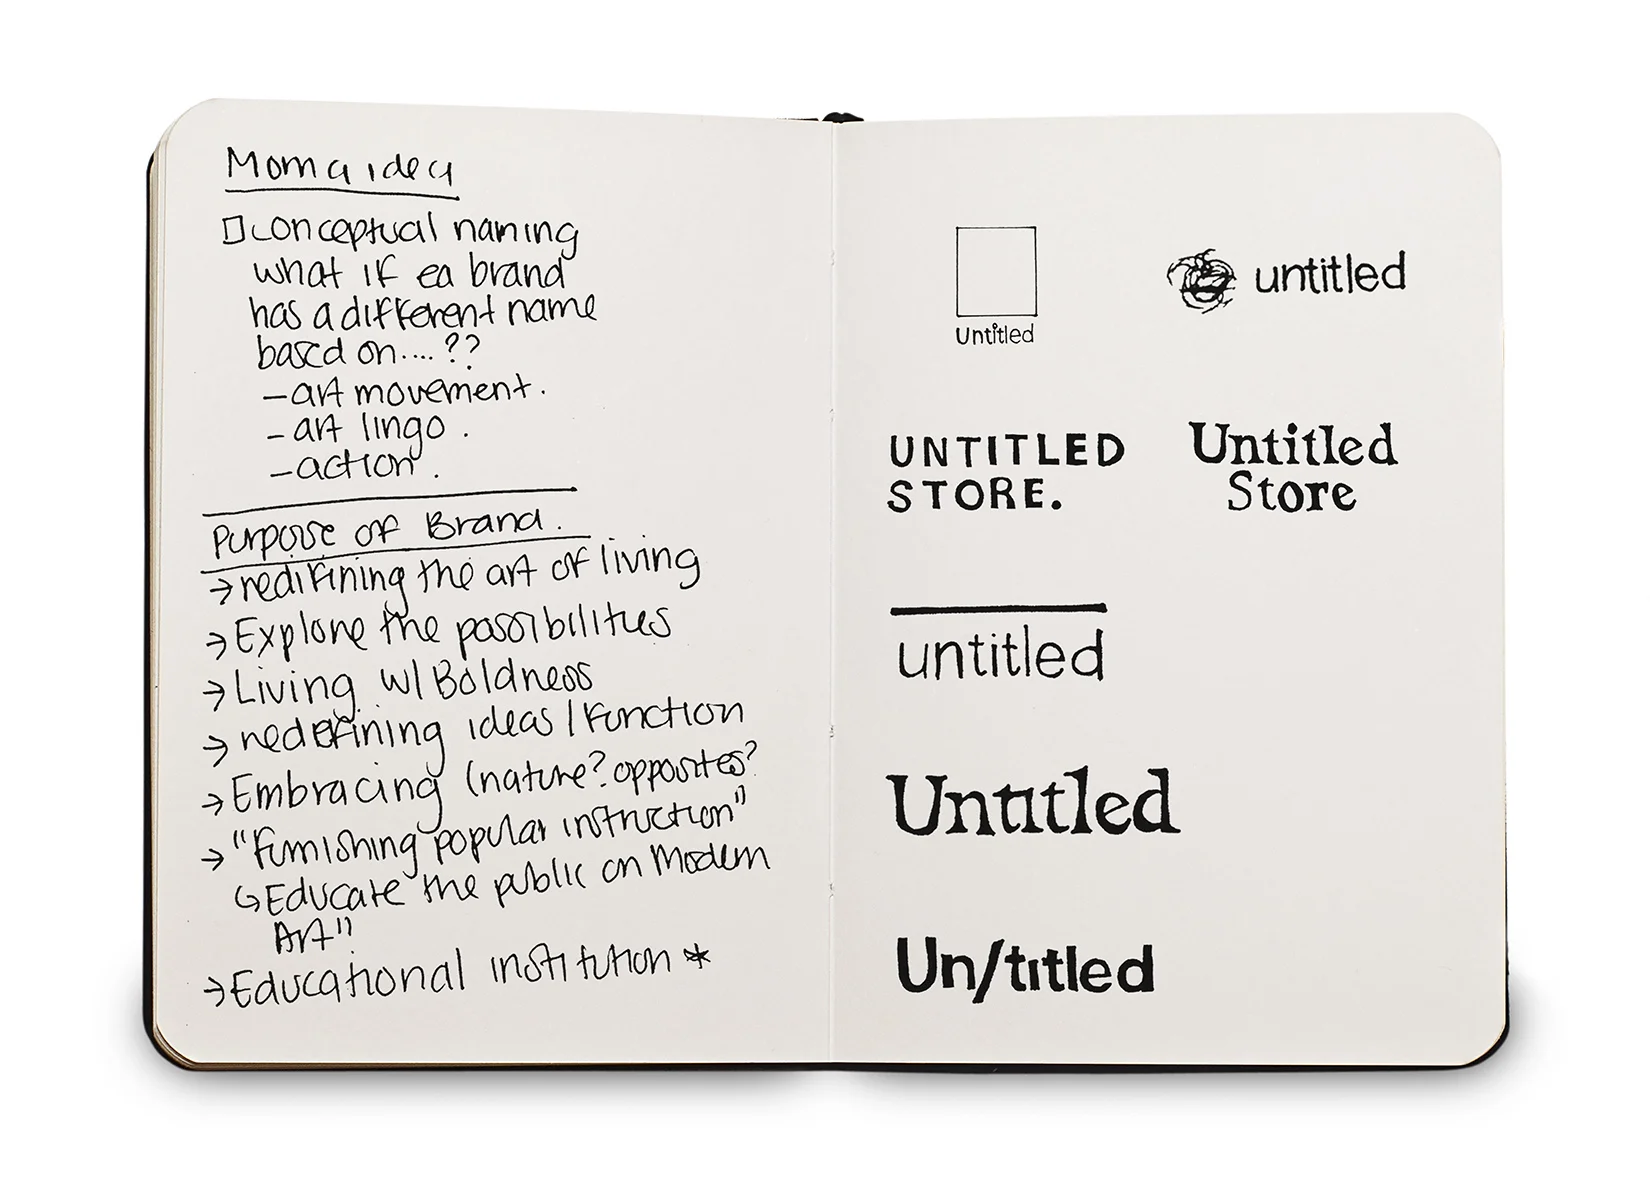 Moma idea
conceptual naming
what if ea brand
has a different name
based on.... ??
- art movement.
- art lingo.
- action.
Purpose of Brand.
→ redifining the art of living
→ Explore the possibilities
→ Living w/ Boldness
→ redefining ideas / function
→ Embracing (nature? opposites?
→ "Furnishing popular instruction"
↳ Educate the public on Modern
Art"
→ Educational institution *
Untitled
untitled
UNTITLED
STORE.
Untitled
Store
untitled
Untitled
Un/titled